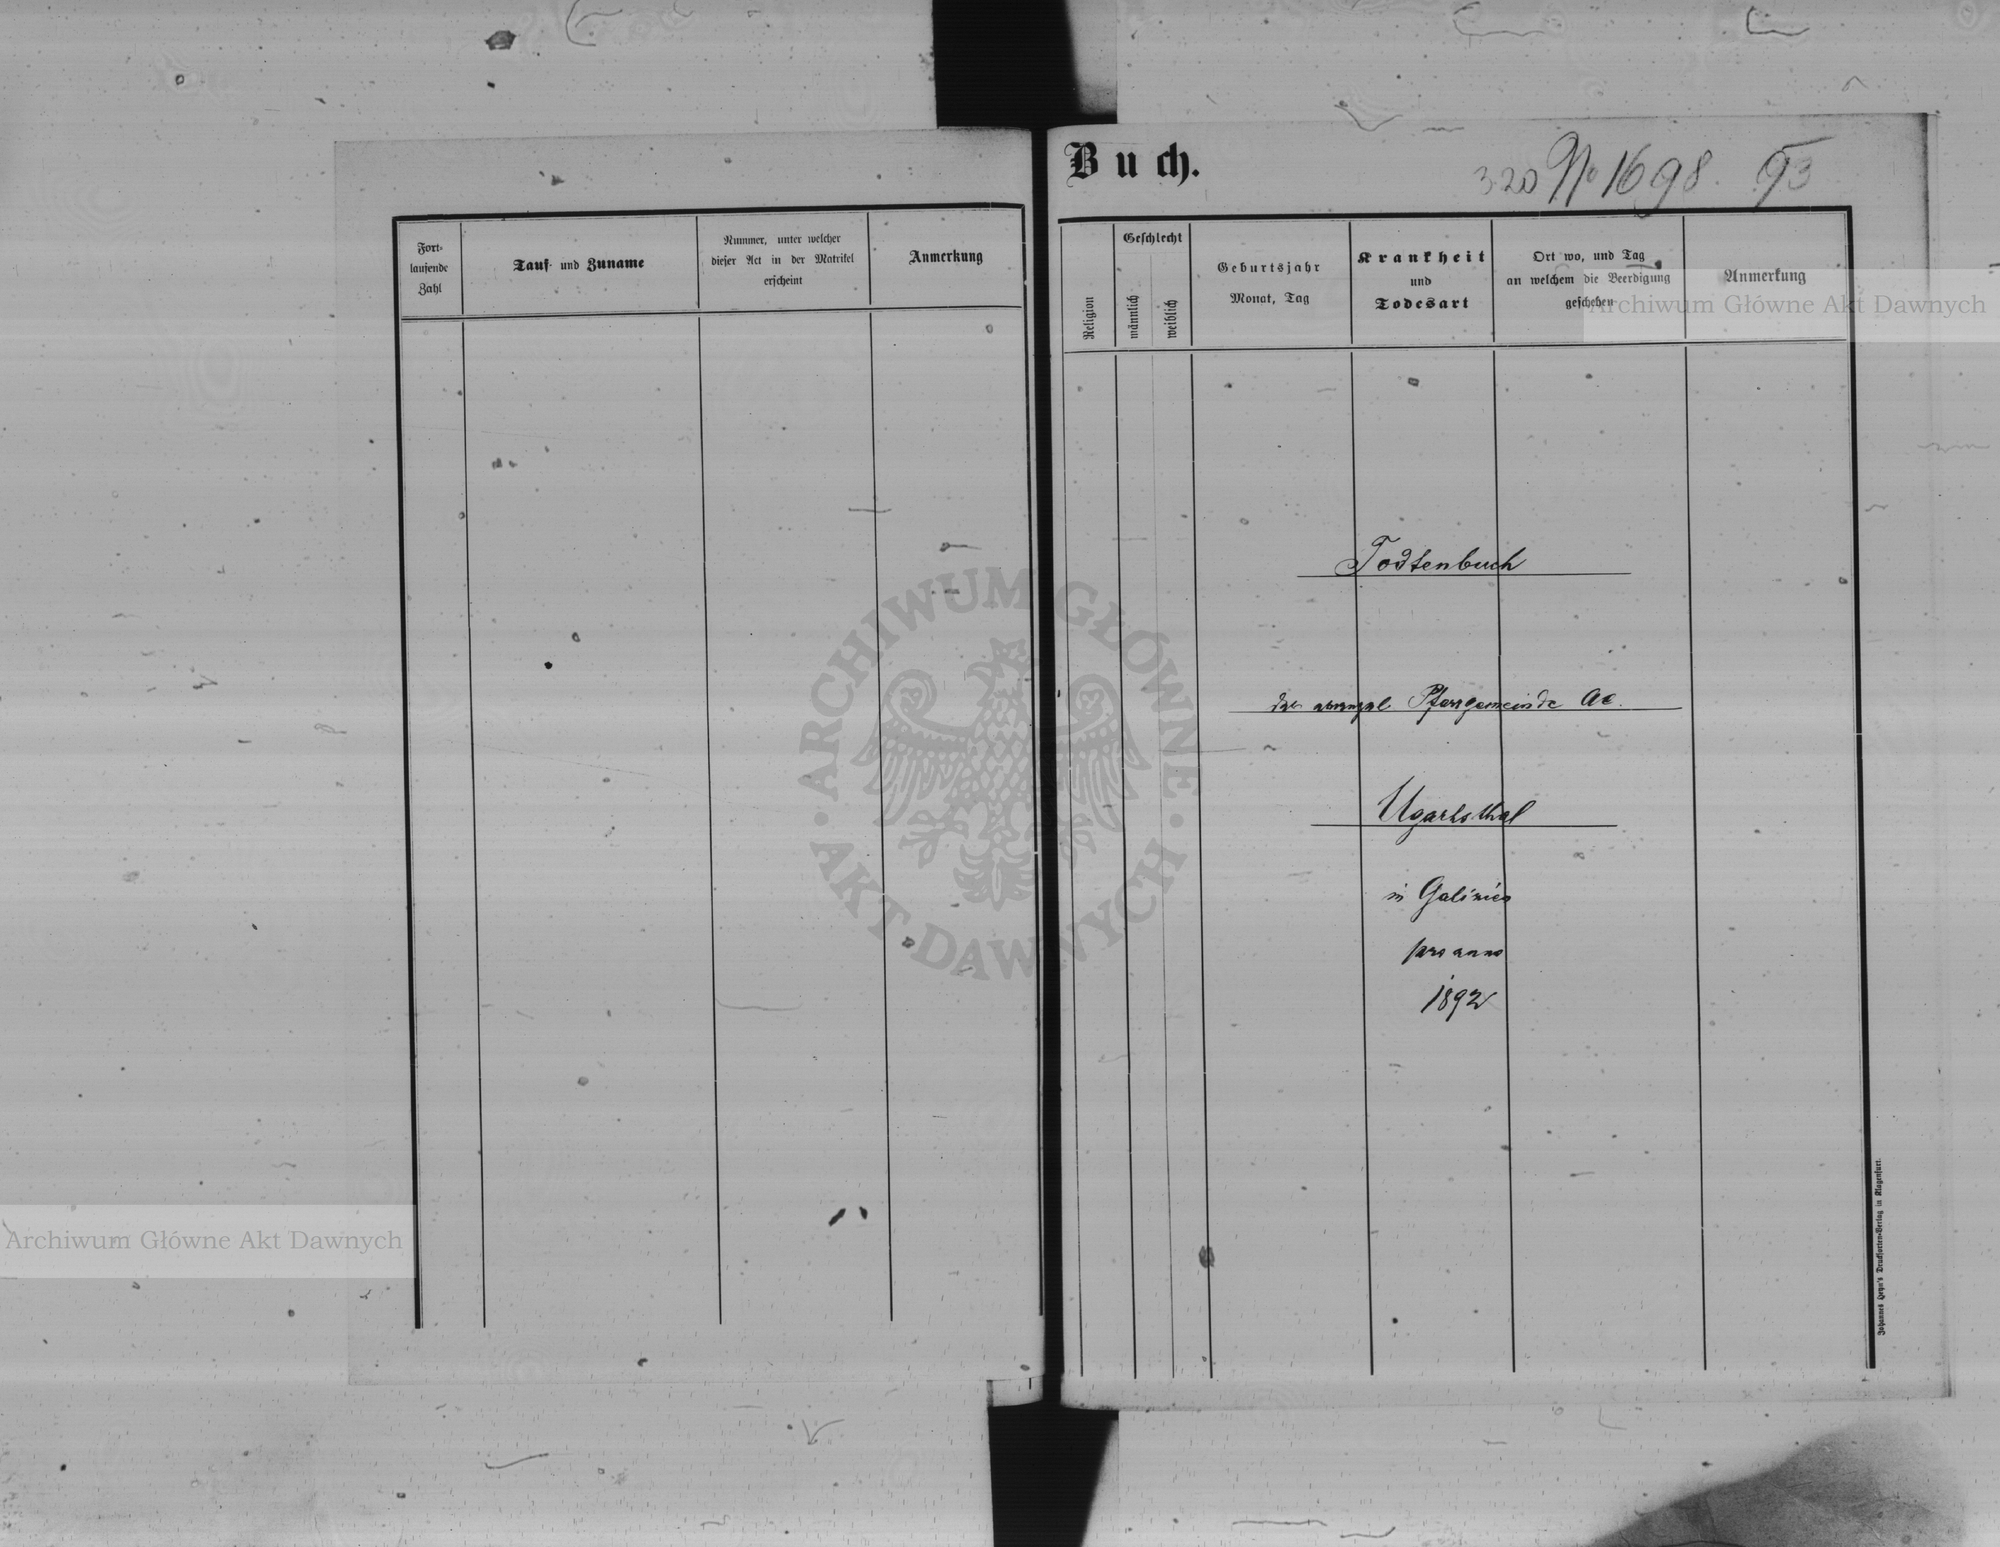 Buch.
320 No 1698. 93
Fort-
laufende
Zahl
Tauf- und Zuname
Nummer, unter welcher
dieser Act in der Matrikel
erscheint
Anmerkung
Religion
Geschlecht
männlich
weiblich
Geburtsjahr
Monat, Tag
Krankheit
und
Todesart
Ort wo, und Tag
an welchem die Beerdigung
geschehen
Anmerkung
Archiwum Główne Akt Dawnych
Todtenbuch
der evangel Pfarrgemeinde AC.
Ugartsthal
in Galizien
pro anno
1892
ARCHIWUM GŁÓWNE
· AKT · DAWNYCH ·
Archiwum Główne Akt Dawnych
Johannes Heyn's Drucksorten-Verlag in Klagenfurt.